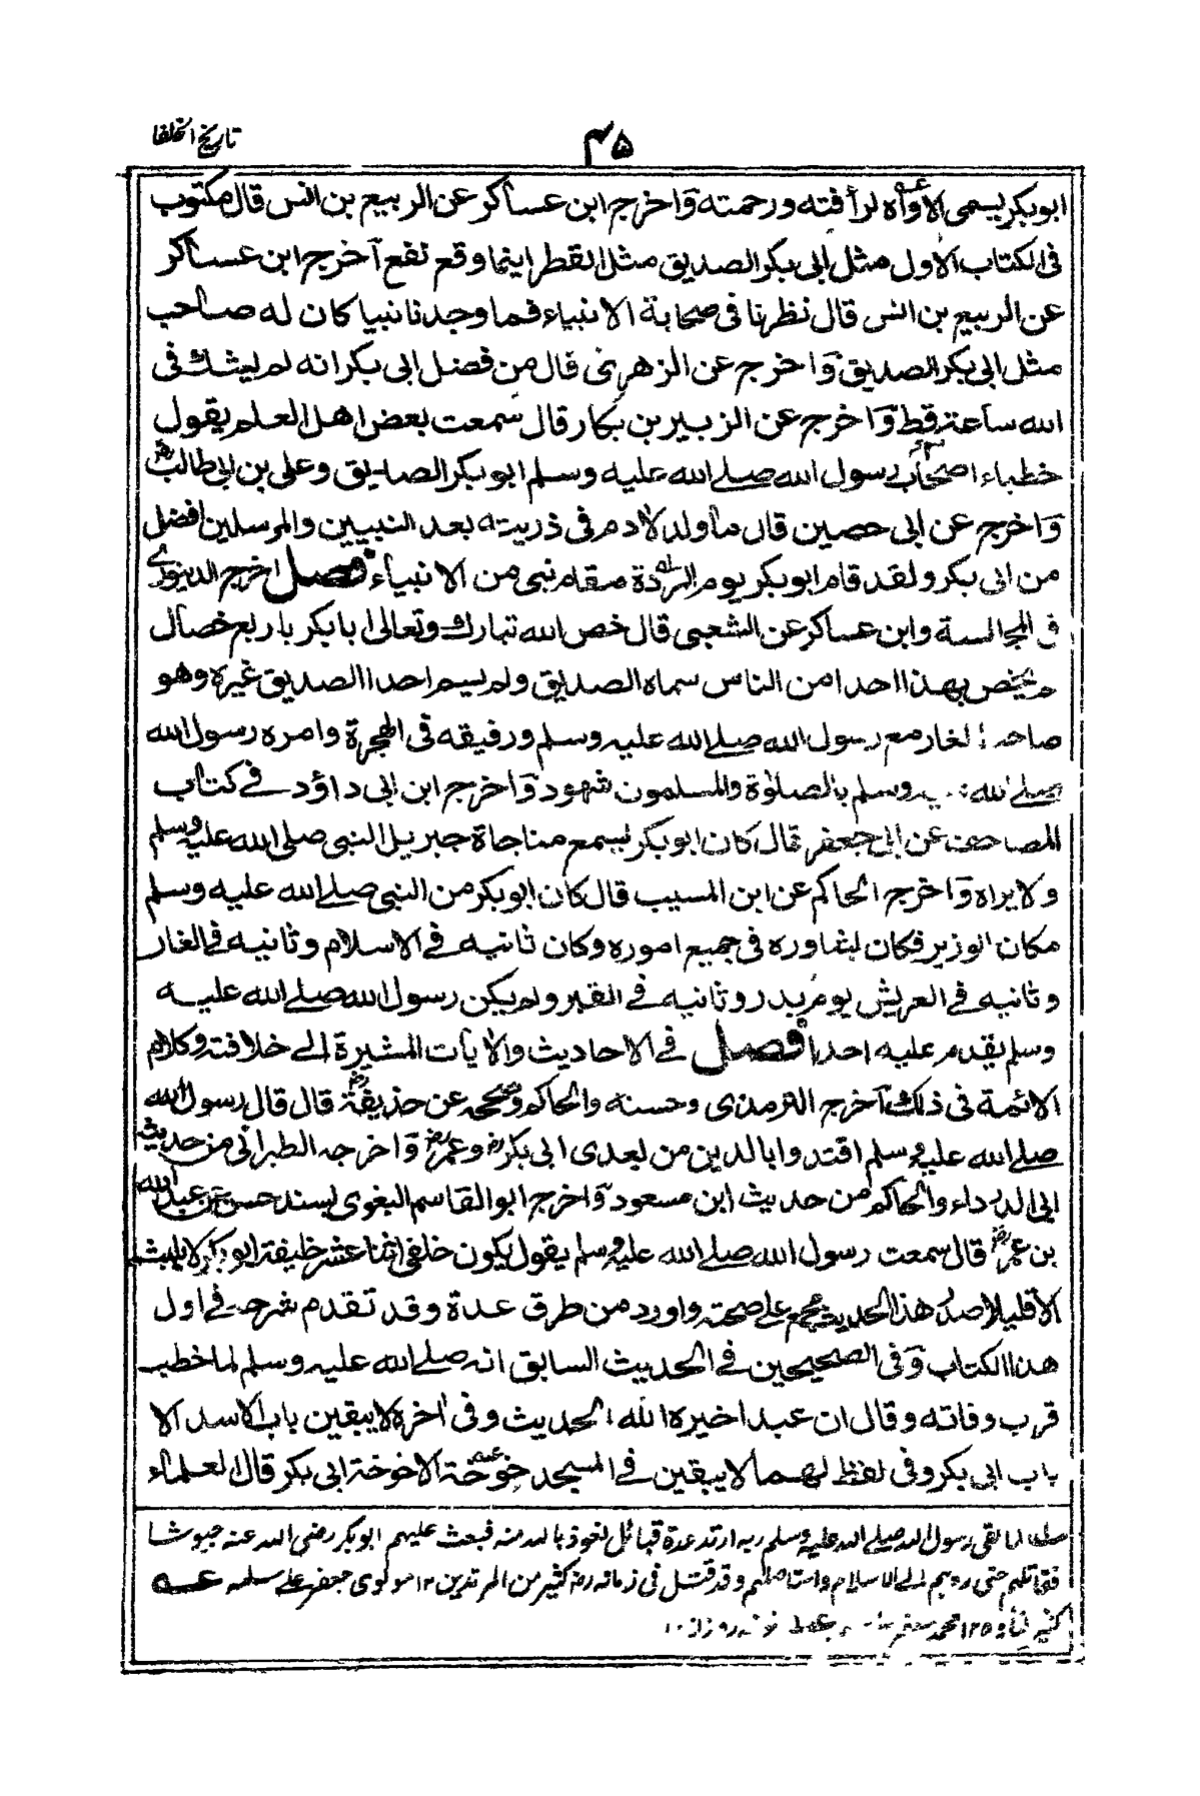 تاريخ الخلفا
٤٥
ابوبكر يسمى الاواه لرأفته ورحمته وَاخرج ابن عساكر عن الربيع بن انس قال مكتوب
فى الكتاب الاول مثل ابى بكر الصديق مثل القطر اينما وقع نفع آخرج ابن عساكر
عن الربيع بن انس قال نظرنا فى صحابة الانبياء فما وجدنا نبيا كان له صاحب
مثل ابى بكر الصديق وَاخرج عن الزهرى قال من فضل ابى بكر انه لم يشك فى
الله ساعة قط وَاخرج عن الزبير بن بكار قال سمعت بعض اهل العلم يقول
خطباء اصحاب رسول الله صلے الله عليه وسلم ابو بكر الصديق وعلى بن ابى طالب رض
وَاخرج عن ابى حصين قال ما ولد لآدم فى ذريته بعد النبيين والمرسلين افضل
من ابى بكر ولقد قام ابو بكر يوم الردة مقام نبى من الانبياء فصل اخرج الدينورى
فى المجالسة وابن عساكر عن الشعبى قال خص الله تبارك وتعالى ابا بكر باربع خصال
لم يخص بهذا احدا من الناس سماه الصديق ولم يسم احدا الصديق غيره وهو
صاحب الغار مع رسول الله صلے الله عليه وسلم ورفيقه فى الهجرة وامره رسول الله
صلے الله وسلم بالصلوٰة والمسلمون شهود وَاخرج ابن ابى داؤد فے كتاب
المصاحف عن ابى جعفر قال كان ابوبكر يسمع مناجاة جبريل النبى صلى الله عليه وسلم
ولا يراه وَاخرج الحاكم عن ابن المسيب قال كان ابوبكر من النبى صلے الله عليه وسلم
مكان الوزير فكان يشاوره فى جميع اموره وكان ثانيه فے الاسلام وثانيه فے الغار
وثانيه فے العريش يوم بدر وثانيه فے القبر ولم يكن رسول الله صلے الله عليه
وسلم يقدم عليه احدا فصل فے الاحاديث والآيات المشيرة الے خلافته وكلام
الائمة فى ذلك آخرج الترمذى وحسنه والحاكم وصححه عن حذيفة رض قال قال رسول الله
صلے الله عليه وسلم اقتدوا بالذين من بعدى ابى بكر رض وعمر رض وَاخرجه الطبرانى من حديث
ابى الدرداء والحاكم من حديث ابن مسعود وَاخرج ابو القاسم البغوى بسند حسن عن عبد الله
بن عمر رض قال سمعت رسول الله صلے الله عليه وسلم يقول يكون خلفى اثنا عشر خليفة ابوبكر لا يلبث
الا قليلا صدر هذا الحديث مجمع على صحته وارد من طرق عدة وقد تقدم شرحه فے اول
هذا الكتاب وَفى الصحيحين فے الحديث السابق انه صلے الله عليه وسلم لما خطب
قرب وفاته وقال ان عبدا خيره الله الحديث وفى آخره لا يبقين باب الا سد الا
باب ابى بكر وفى لفظ لهما لا يبقين فے المسجد خوخة الا خوخة ابى بكر قال العلماء
لما لقى رسول الله صلے الله عليه وسلم ربه ارتد عدة قبائل نعوذ بالله منه فبعث عليهم ابوبكر رضى الله عنه جيوشا
فقاتلهم حتى ردهم الے الاسلام واستاصلهم وقد قتل فى زمانه رض كثير من المرتدين ١٢ مولوى جعفر على سلمه